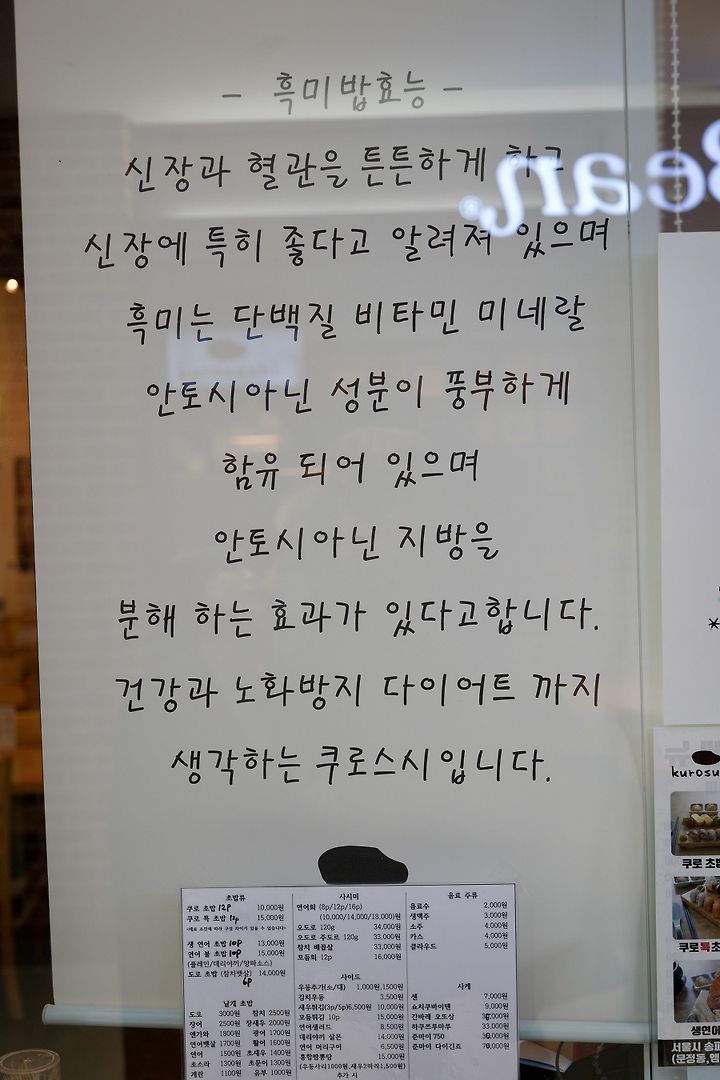 - 흑미밥효능 -
신장과 혈관을 튼튼하게 하고
신장에 특히 좋다고 알려져 있으며
흑미는 단백질 비타민 미네랄
안토시아닌 성분이 풍부하게
함유 되어 있으며
안토시아닌 지방을
분해 하는 효과가 있다고합니다.
건강과 노화방지 다이어트 까지
생각하는 쿠로스시입니다.
Bean
초밥류
쿠로 초밥 12p 10,000원
쿠로 특 초밥 12p 15,000원
생 연어 초밥 10p 13,000원
연어 불 초밥 10p 15,000원
(플레인/데리야끼/양파소스)
도로 초밥 (참치뱃살) 14,000원
6p
낱개 초밥
도로 3000원 참치 2500원
장어 2500원 장새우 2000원
엔가와 1800원 광어 1700원
연어뱃살 1700원 활어 1600원
연어 1500원 초새우 1400원
초소라 1300원 초문어 1300원
계란 1100원 유부 1000원
사시미
연어회 (8p/12p/16p)
(10,000/14,000/18,000)원
오도로 120g 34,000원
오도로 주도로 120g 33,000원
참치 배꼽살 33,000원
모듬회 12p 16,000원
사이드
우동추가(소/대) 1,000원,1500원
김치우동 3,500원
새우튀김(3p/5p)6,500원 10,000원
모듬튀김 10p 15,000원
연어샐러드 8,500원
데리야끼 살몬 14,000원
연어 머리구이 6,500원
홍합짬뽕탕 15,000원
(우동사리1000원,새우2마리1,500원)
추가 시
음료 주류
음료수 2,000원
생맥주 3,000원
소주 4,000원
카스 4,000원
클라우드 5,000원
사케
센 7,000원
쇼치쿠바이텐 9,000원
간바레 오또상
하쿠쯔루마루 33,000원
준마이 750
준마이 다이긴죠
kurosu
쿠로 초밥
쿠로특초
생연어
서울시 송파